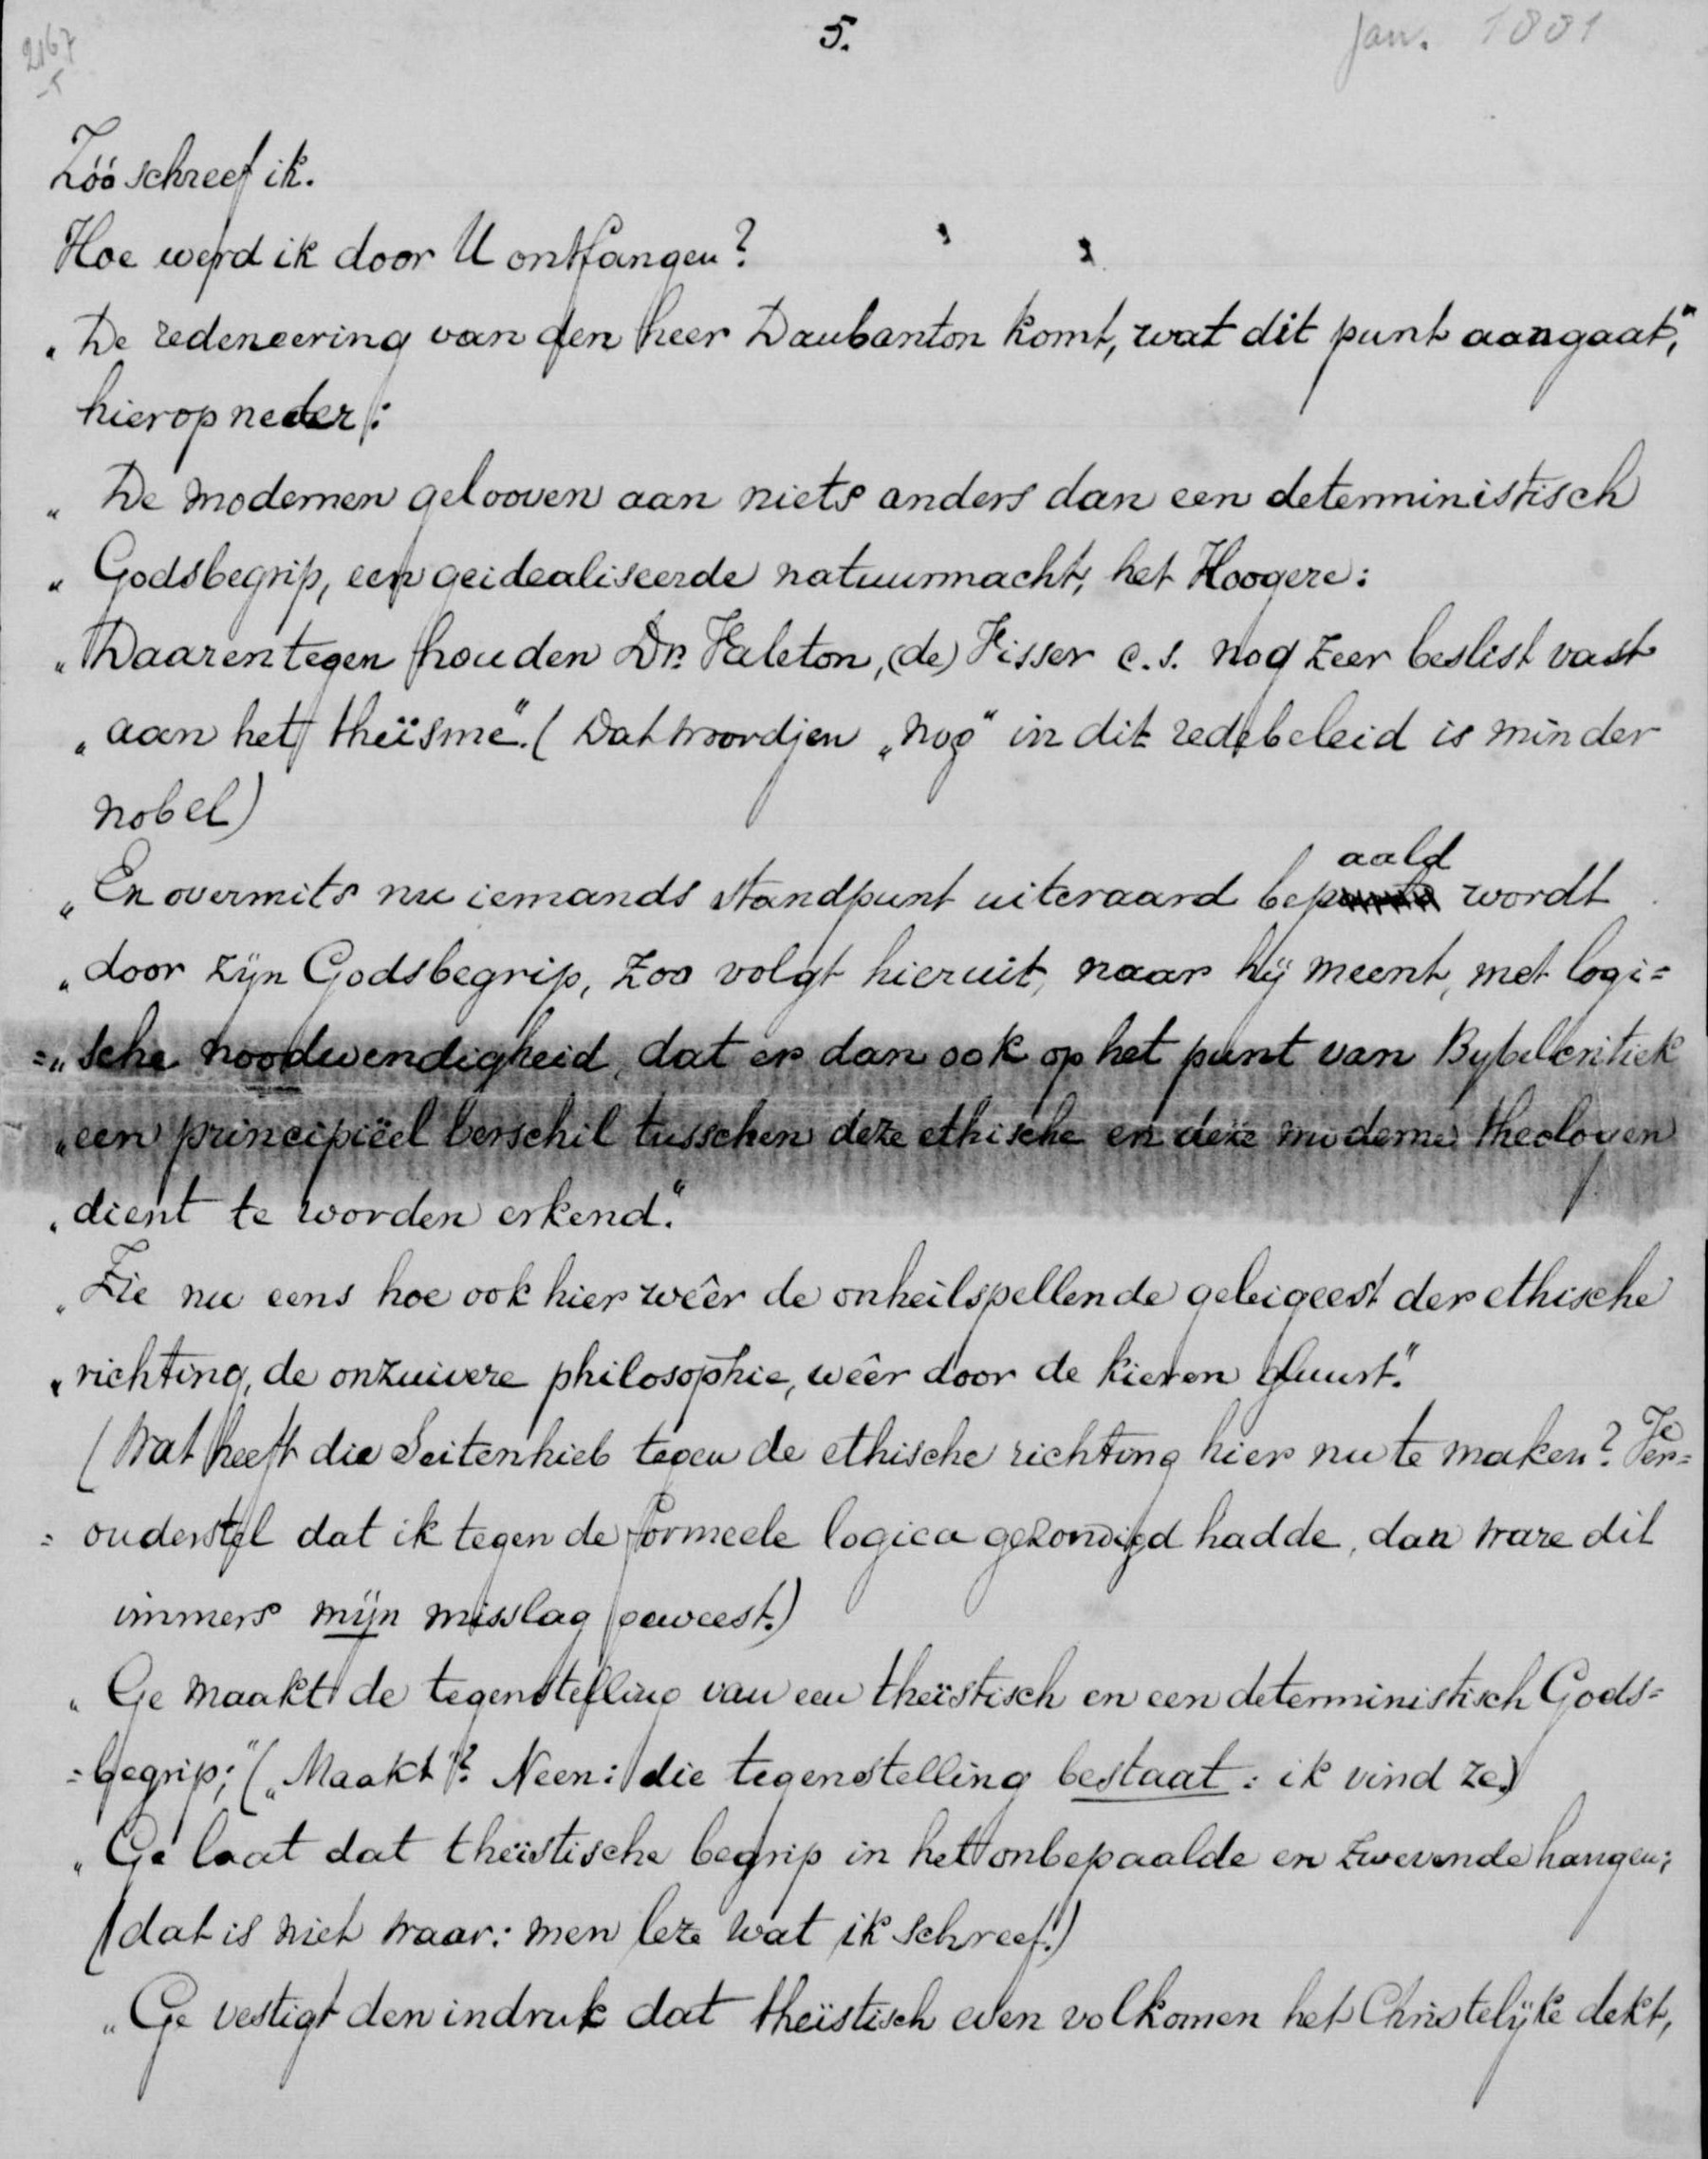 2167
5
5.
Jan. 1881
Zóó schreef ik.
Hoe werd ik door U ontfangen?
„De redeneering van den heer Daubanton komt, wat dit punt aangaat,"
hierop neder:
„De modernen gelooven aan niets anders dan een deterministisch
„Godsbegrip, een geidealiseerde natuurmacht, het Hoogere:
„Daarentegen houden Dr. Valeton, (de) Visser c.s. nog zeer beslist vast
„aan het theïsme". (Dat woordjen „nog" in dit redebeleid is minder
nobel)
„En overmits nu iemands standpunt uiteraard bepaald wordt
„door zijn Godsbegrip, zoo volgt hieruit, naar hij meent, met logi=
=„sche noodwendigheid, dat er dan ook op het punt van Bybelcritiek
„een principiëel verschil tusschen deze ethische en deze moderne theologen
„dient te worden erkend."
„Zie nu eens hoe ook hier wêêr de onheilspellende geleigeest der ethische
„richting, de onzuivere philosophie, wêêr door de kieren gluurt."
(Wat heeft die Seitenhieb tegen de ethische richting hier nu te maken? Ver=
=onderstel dat ik tegen de formeele logica gezondigd hadde, dan ware dit
immers mijn misslag geweest.)
„Ge maakt de tegenstelling van een theïstisch en een deterministisch Gods=
=begrip;" („Maakt"? Neen: die tegenstelling bestaat: ik vind ze.)
„Ge laat dat theïstische begrip in het onbepaalde en zwevende hangen;
(dat is niet waar: men leze wat ik schreef!)
„Ge vestigt den indruk dat theïstisch even volkomen het Christelijke dekt,